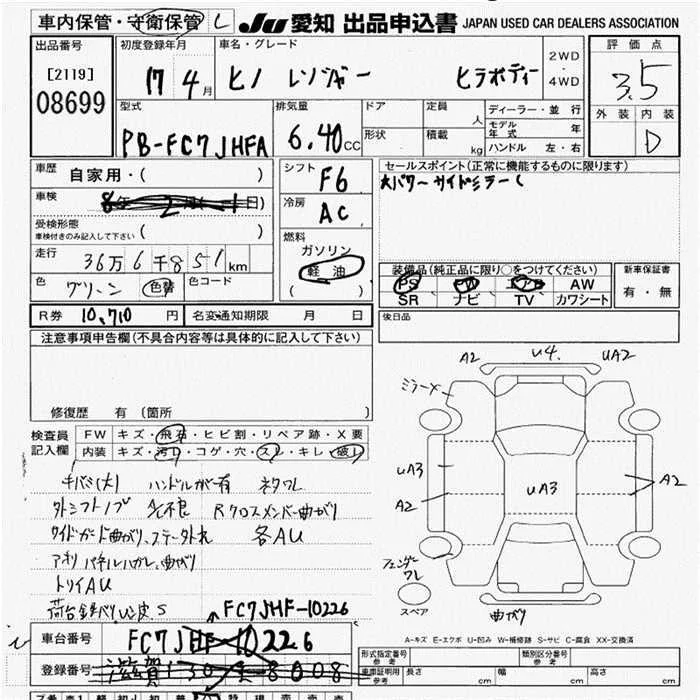 車内保管・守衛保管 し
JU 愛知 出品申込書 JAPAN USED CAR DEALERS ASSOCIATION
出品番号
[2119]
08699
初度登録年月
17 4月
車名・グレード
ヒノ レンジャー ヒラボディー
2WD
・
4WD
評価点
3.5
外装 内装
D
型式
PB-FC7JHFA
排気量
6.40cc
ドア
形状
定員 人
積載 kg
ディーラー・並行
モデル年式 年
ハンドル 左・右
車歴
自家用・( )
車検
8年 2月( 1日)
受検形態
車検付きのみ記入して下さい ( )
走行
36万6千851km
色
グリーン 色替 色コード
シフト
F6
冷房
AC
燃料
ガソリン
軽油
( )
セールスポイント(正常に機能するものに限ります)
大パワー サイドミラーし
装備品(純正品に限り○をつけてください)
PS PW エアB AW
SR ナビ TV カワシート
新車保証書
有・無
R券 10,710 円 名変通知期限 月 日
後日品
注意事項申告欄(不具合内容等は具体的に記入して下さい)
修復歴 有(箇所 )
検査員
記入欄
FW キズ・飛石・ヒビ割・リペア跡・X要
内装 キズ・汚れ・コゲ・穴・スレ・キレ・破レ
ハンドルガー有
外シフトノブ 不良 Rクロスメンバー曲がり
サイドガード曲がり、ステー外れ 各AU
アオリ パネルハガレ、曲がり
トリイAU
FC7JHF-10226
A2 U4. UA2
ミラーメ
UA3
A2
UA3
A2
フェンダー
ワレ
スペア
曲がり
A-キズ E-エクボ U-凹み W-補修跡 S-サビ C-腐食 XX-交換済
車台番号 FC7JHF-10226
登録番号 滋賀130さ8008
形式指定番号
参考
類別区分番号
参考
車庫証明用
参考
長さ 幅 高さ
cm cm cm